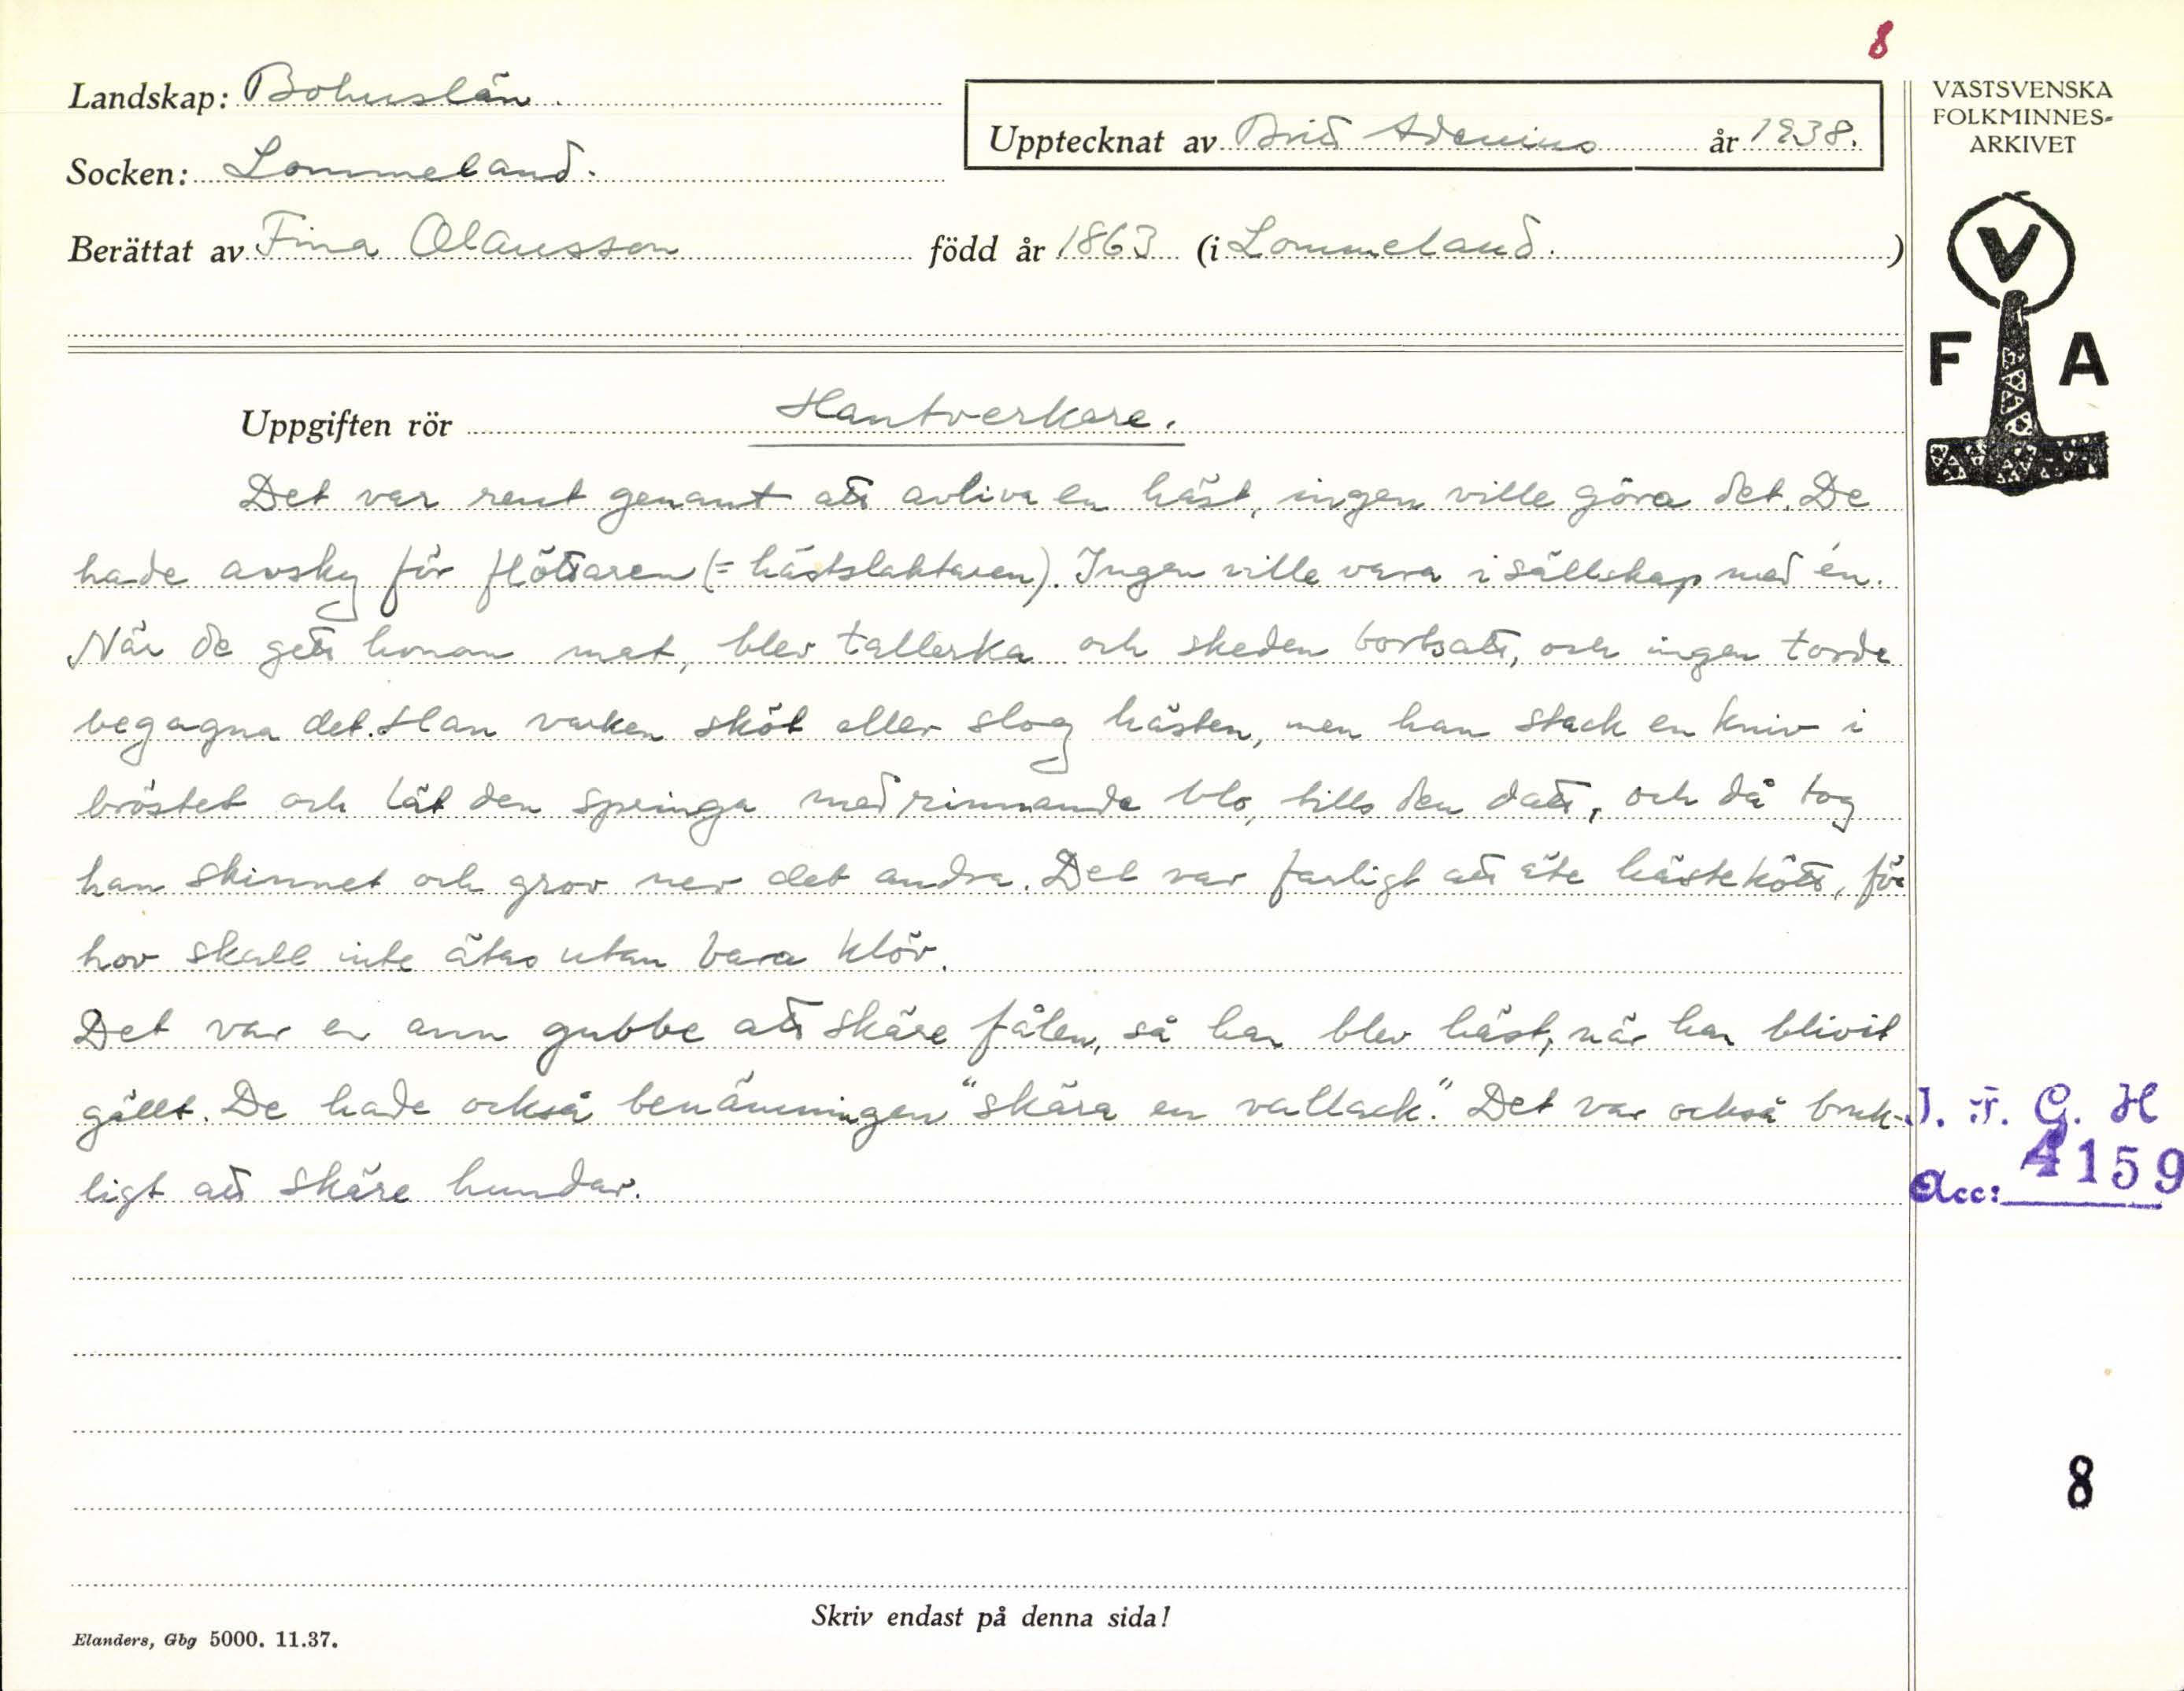 8
Landskap: Bohuslän
Upptecknat av Brit Adenius år 1938.
Socken: Lommeland.
Berättat av Fina Olausson född år 1863 (i Lommeland.)
VÄSTSVENSKA
FOLKMINNES-
ARKIVET
V
F A
Uppgiften rör Hantverkare.
Det var rent genant att avliva en häst, ingen ville göra det. De
hade avsky för flöttaren (= hästslaktaren). Ingen ville vara i sällskap med én.
När de gett honom mat, blev tallerka och skeden bortsatt, och ingen torde
begagna det. Han varken sköt eller slog hästen, men han stack en kniv i
bröstet och lät den springa med rinnande blo, tills den datt, och då tog
han skinnet och grov ner det andra. Det var farligt att äte hästekött, för
hov skall inte ätas utan bara klöv.
Det var en ann gubbe att skäre fålen, så han blev häst, när han blivit
gällt. De hade också benämningen "skära en vallack." Det var också bruk-
ligt att skäre hundar.
J. F. G. H
Acc: 4159
8
Skriv endast på denna sida!
Elanders, Gbg 5000. 11.37.